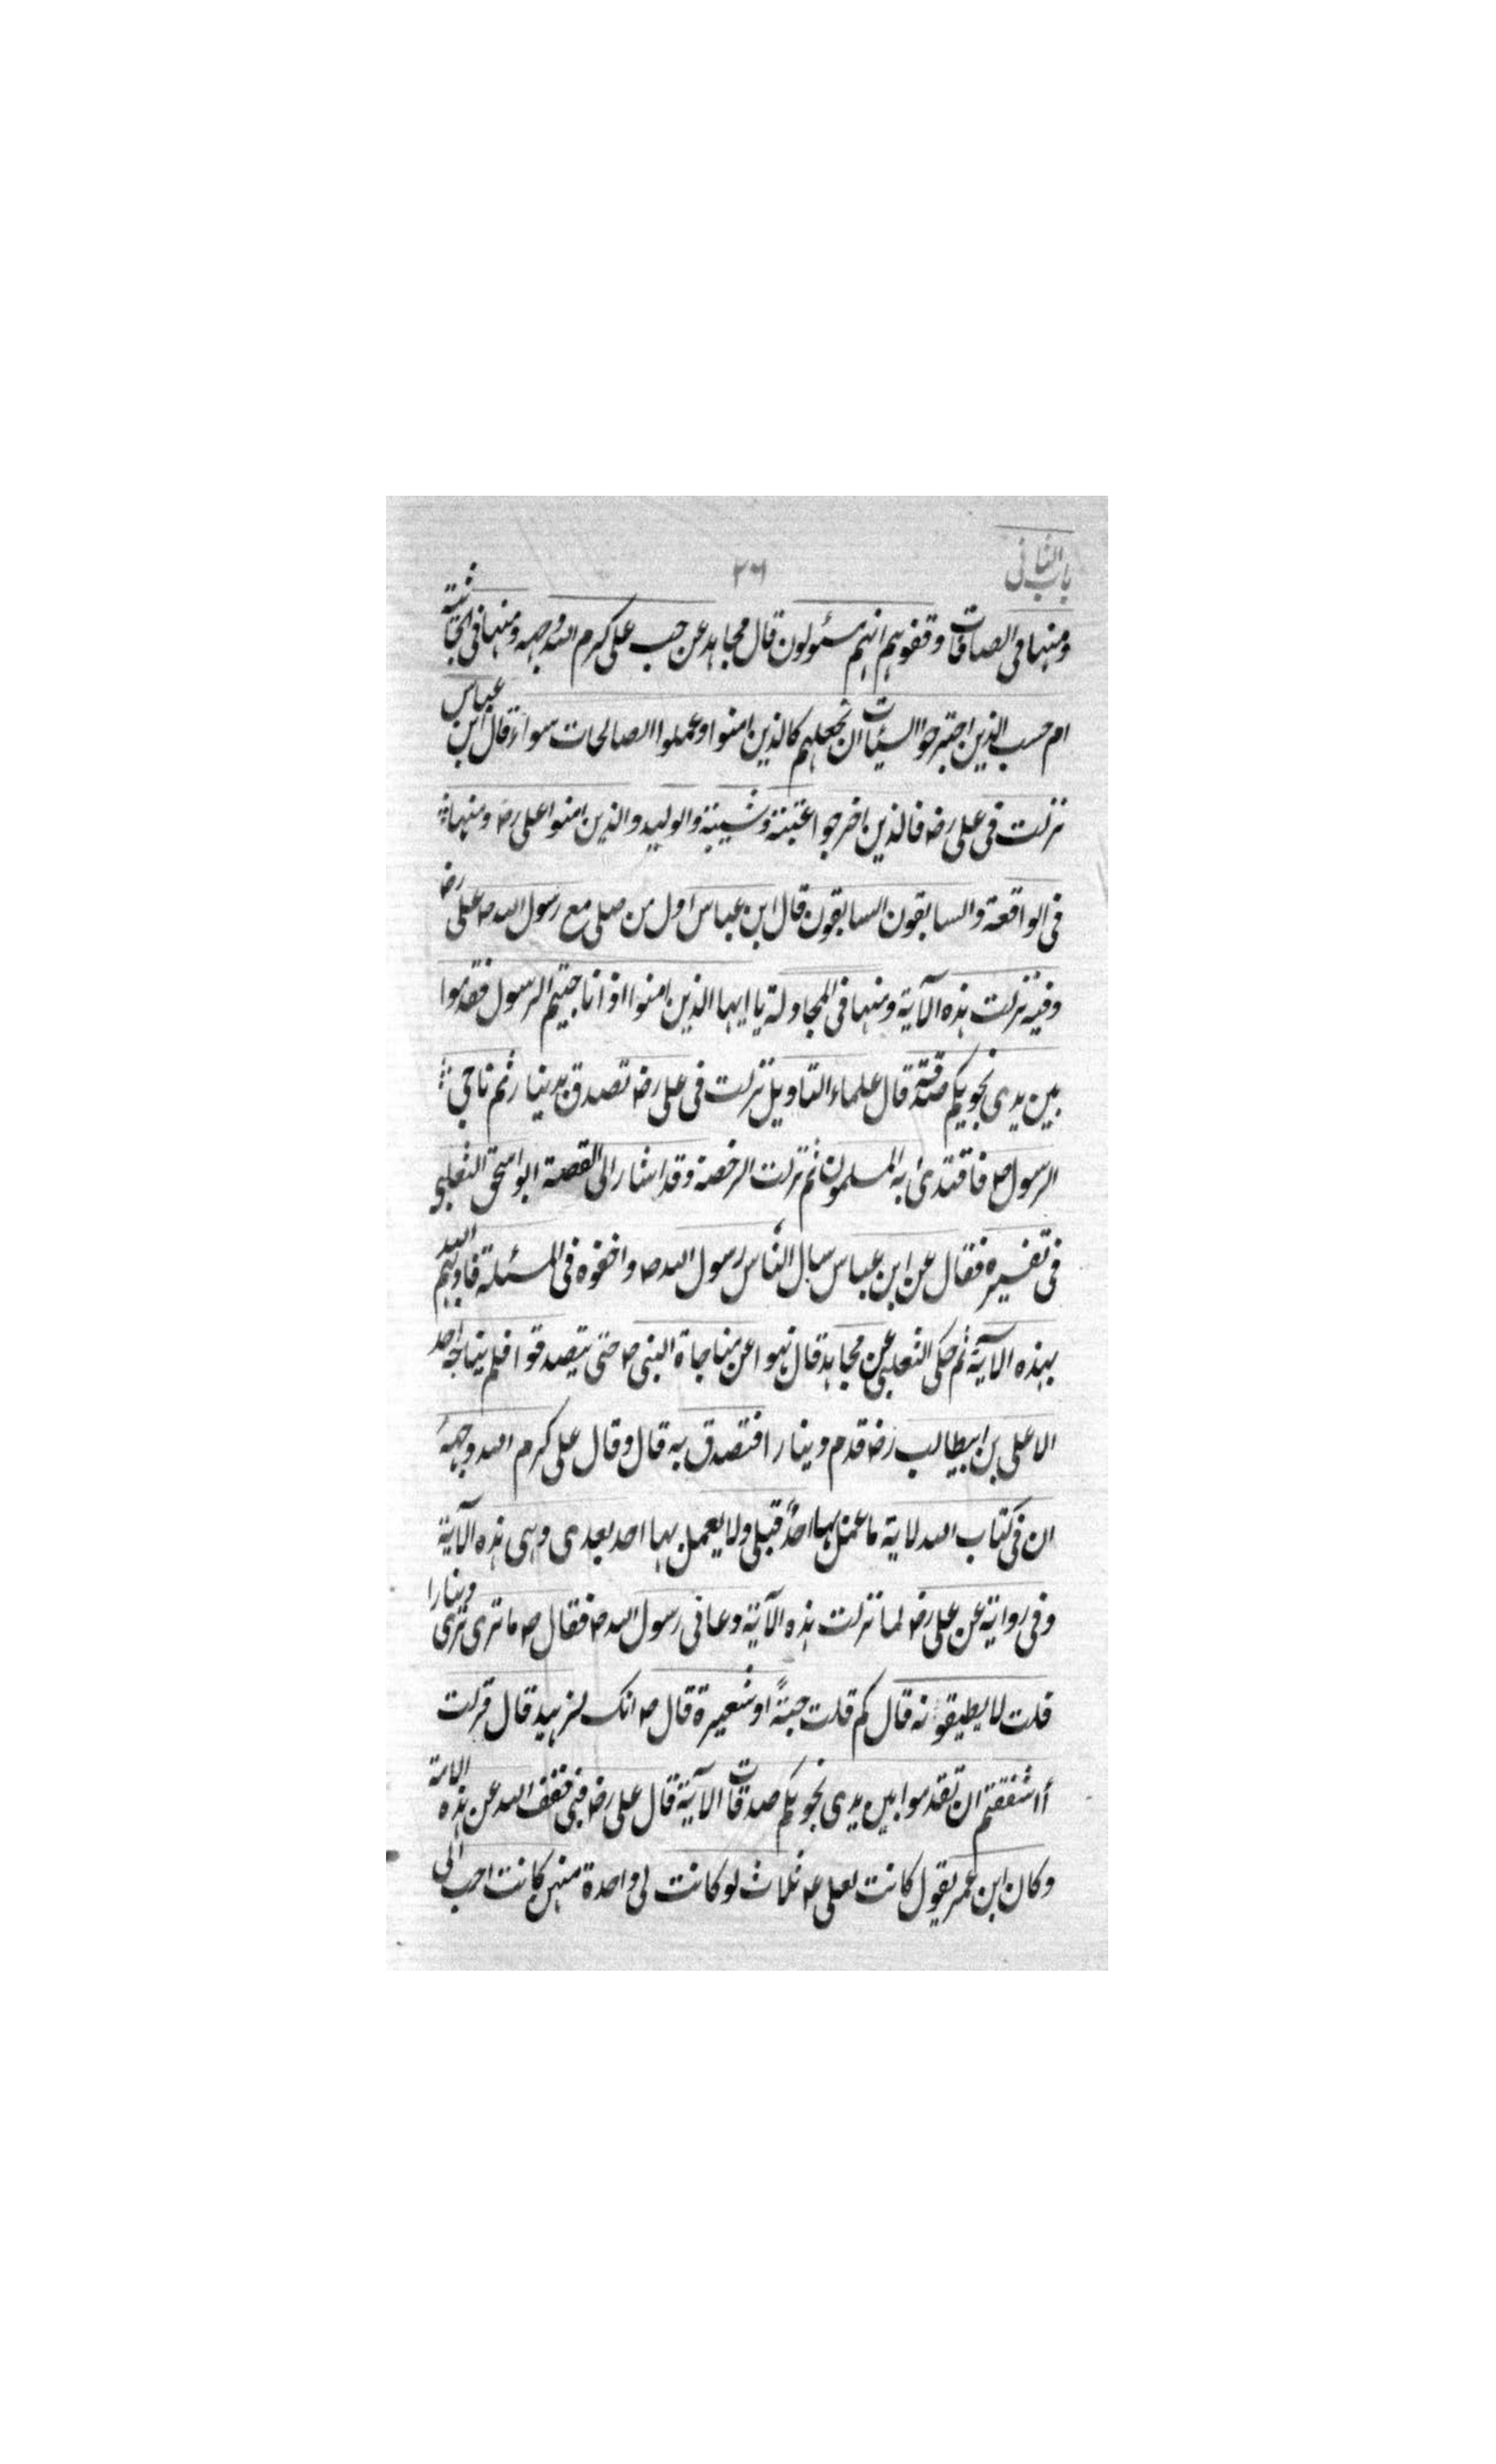 باب الثانی
۲۶
ومنها فی الصافات وقفوهم انهم مسئولون قال مجاهد عن حب علی کرم الله وجهه ومنها فی الجاثیة
ام حسب الذین اجترحوا السیئات ان نجعلهم کالذین امنوا وعملوا الصالحات سواء قال ابن عباس
نزلت فی علی رضه فالذین اخرجوا عتبة وشیبة والولید والذین امنوا علی رضه ومنها
فی الواقعة والسابقون السابقون قال ابن عباس اول من صلی مع رسول الله صه علی رضه
وفیه نزلت هذه الآیة ومنها فی المجادلة یا ایها الذین امنوا اذا ناجیتم الرسول فقدموا
بین یدی نجویکم صدقة قال علماء التاویل نزلت فی علی رضه تصدق بدینار ثم ناجی
الرسول صه فاقتدی به المسلمون ثم نزلت الرخصة وقد اشار الی القصة ابو اسحق الثعلبی
فی تفسیره فقال عن ابن عباس سال الناس رسول الله صه واحفوه فی المسئلة فادبهم الله
بهذه الآیة ثم حکی الثعلبی عن مجاهد قال نهوا عن مناجاة النبی صه حتی یتصدقوا فلم یناجه احد
الا علی بن ابیطالب رضه قدم دینارا فتصدق به قال وقال علی کرم الله وجهه
ان فی کتاب الله لایة ما عمل بها احد قبلی ولا یعمل بها احد بعدی وهی هذه الآیة
وفی روایة عن علی رضه لما نزلت هذه الآیة دعانی رسول الله صه فقال صه ما تری تری دینارا
قلت لا یطیقونه قال کم قلت حبةً او شعیرة قال صه انک لزهید قال فنزلت
أاشفقتم ان تقدموا بین یدی نجویکم صدقات الآیة قال علی رضه فبی خفف الله عن هذه الامة
وکان ابن عمر یقول کانت لعلی عه ثلاث لو کانت لی واحدة منهن کانت احب الی